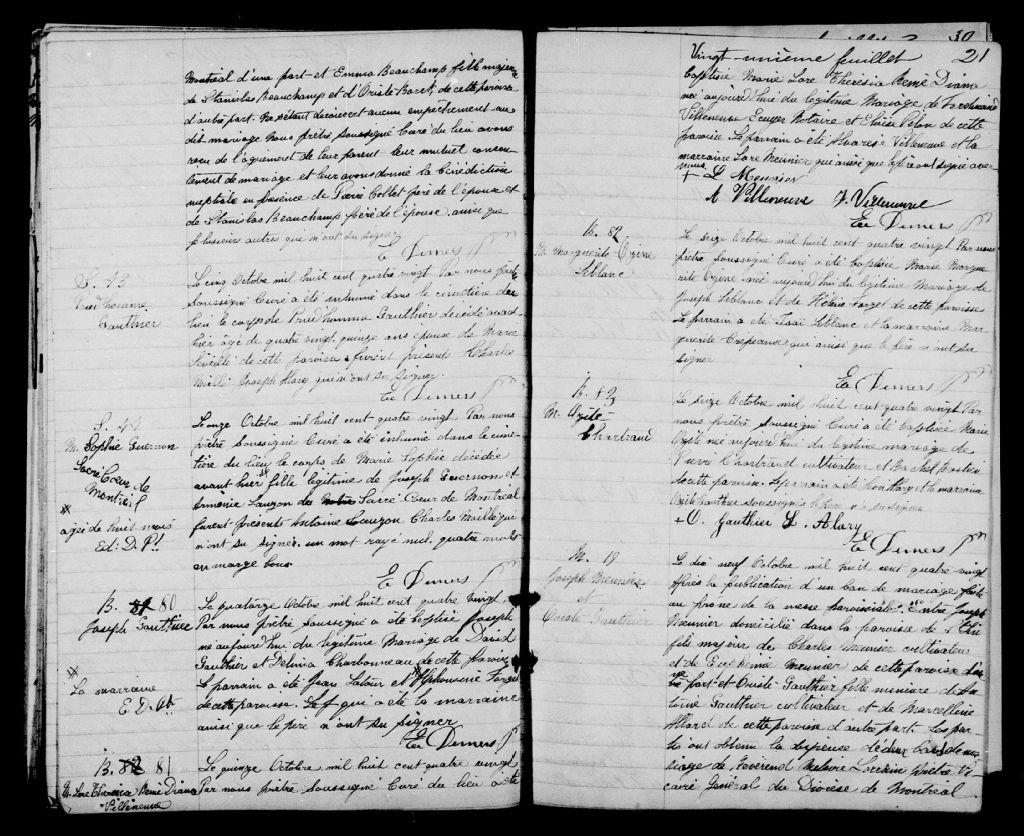 Montréal d'une part et Emma Beauchamp fille majeure
de Stanislas Beauchamp et d'Oriste Boret, de cette paroisse
d'autre part. Ne s'étant découvert aucun empêchement au
dit mariage Nous prêtre soussigné Curé du lieu avons
recu de l'agrement de leur parent leur mutuel consen
tement de mariage et leur avons donné la bénédiction
nuptiale en présence de frère de l'époux et
de Stanislas Beauchamp frère de l'épouse, ainsi que
plusieurs autres qui n'ont su signer
Ed Demers Ptre
S. 43
Prud'homme
Gauthier
Le cinq Octobre mil huit cent quatre vingt Par nous prêtre
soussigné Curé a été inhumé dans le cimetière du
lieu le corps de Prud'homme Gauthier décédé avant
hier agé de quatre vingt quinze ans époux de Marie
de cette paroisse furent présents Charles
Joseph Alary qui n'ont su signer.
Ed Demers Ptre
S. 44
M. Sophie Guernon
Sacré Coeur de
Montréal
agée de huit mois
Ed. D. Pt
Le onze Octobre mil huit cent quatre vingt Par nous
prêtre soussigné Curé a été inhumé dans le cime
tière du lieu le corps de Marie Sophie décédée
avant hier fille légitime de Joseph Guernon et
Arménie Lauzon du Sacré Coeur de Montréal
furent présents Antoine Lauzon Charles qui
n'ont su signer. un mot rayé nul. quatre mots
en marge bons
Ed Demers Ptre
B. 80
Joseph Gauthier
La marraine
E. D. Pt
Le quatorze Octobre mil huit cent quatre vingt
Par nous prêtre soussigné a été baptisé Joseph
né aujourd'hui du légitime Mariage de David
Gauthier et Delima Charbonneau de cette paroisse
Le parrain a été Jean Latour et Alphonsine
de cette paroisse. qui a été la marraine
ainsi que le père n'ont su signer
Ed Demers Ptre
B. 82 81
M. Lore Theresia Reme Diana
Villeneuve
Le quinze Octobre mil huit cent quatre vingt
Par nous prêtre soussigné Curé du lieu a été
30
Vingt-unième feuillet 21
baptisée Marie Lore Theresia Reme Diana
née aujourd'hui du légitime Mariage de Ferdinand
Villeneuve Ecuyer Notaire et Eloise Pelon de cette
paroisse Le parrain a été Alvares Villeneuve et la
marraine Lore Meunier qui ainsi que le père ont signé avec
nous.
+ L Meunier
A Villeneuve F. Villeneuve
Ed Demers Ptre
B. 82
M. Marguerite Ozine
Leblanc
Le seize Octobre mil huit cent quatre vingt Par nous
prêtre soussigné Curé a été baptisée Marie Margue
rite Ozine née aujourd'hui du légitime Mariage de
Joseph Leblanc et de de cette paroisse
Le parrain a été Isaï Leblanc et la marraine Mar
guerite Crepeau qui ainsi que le père n'ont su
signer
Ed Demers Ptre
B. 82
M. Ozite
Chartrand
Le seize Octobre mil huit cent quatre vingt Par
nous prêtre soussigné Curé a été baptisée Marie
Ozite née aujourd'hui du légitime mariage de
Pierre Chartrand cultivateur et Rachel
de cette paroisse. Le parrain a été Alary et la marraine
Ozite Gauthier soussignés le père n'a su signer
+ O. Gauthier L. Alary
Ed Demers Ptre
M. 19
Joseph Meunier
et
Oriste Gauthier
Le dix neuf Octobre mil huit cent quatre vingt
Après la publication d'un ban de mariage faite
au prone de la messe paroissiale. Entre Joseph
Meunier domicilié dans la paroisse de
fils majeur de Charles Meunier cultivateur
et de Euphemie Meunier de cette paroisse d'u
ne part et Oriste Gauthier fille mineure de An
toine Gauthier cultivateur et de Marcelline
Allard de cette paroisse d'autre part. Les par
ties ont obtenu la dispense de deux bans de ma
riage de Reverend Lorrain prêtre Vi
caire Général du Diocèse de Montréal